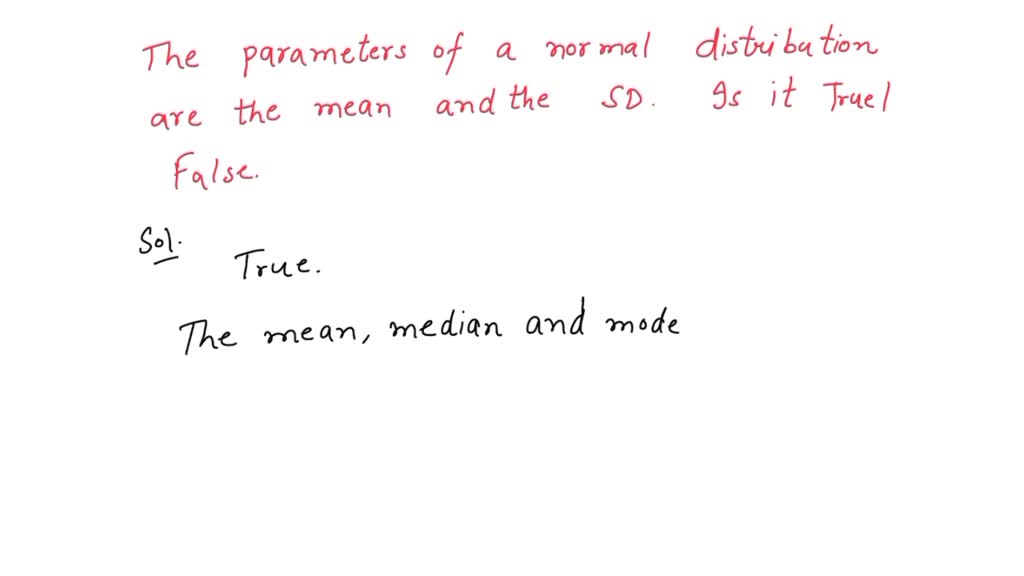 The parameters of a normal distribution
are the mean and the SD. Is it True/
False.
Sol.
True.
The mean, median and mode